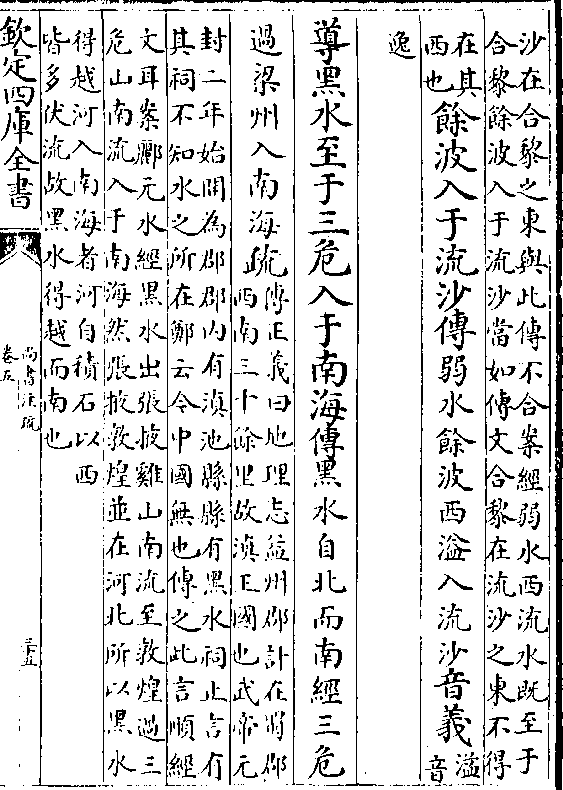 沙在合黎之東與此傳不合案經弱水西流水既至于
合黎餘波入于流沙當如傳文合黎在流沙之東不得
在其
西也
餘波入于流沙傳弱水餘波西溢入流沙音義
溢
音
逸
導黑水至于三危入于南海傳黑水自北而南經三危
過梁州入南海疏
傳正義曰地理志益州郡計在蜀郡
西南三十餘里故滇王國也武帝元
封二年始開為郡郡内有滇池縣縣有黑水祠止言有
其祠不知水之所在鄭云今中國無也傳之此言順經
文耳案酈元水經黑水出張掖雞山南流至敦煌過三
危山南流入于南海然張掖敦煌並在河北所以黑水
得越河入南海者河自積石以西
皆多伏流故黑水得越而南也
欽定四庫全書
尚書注疏
卷五
三十五